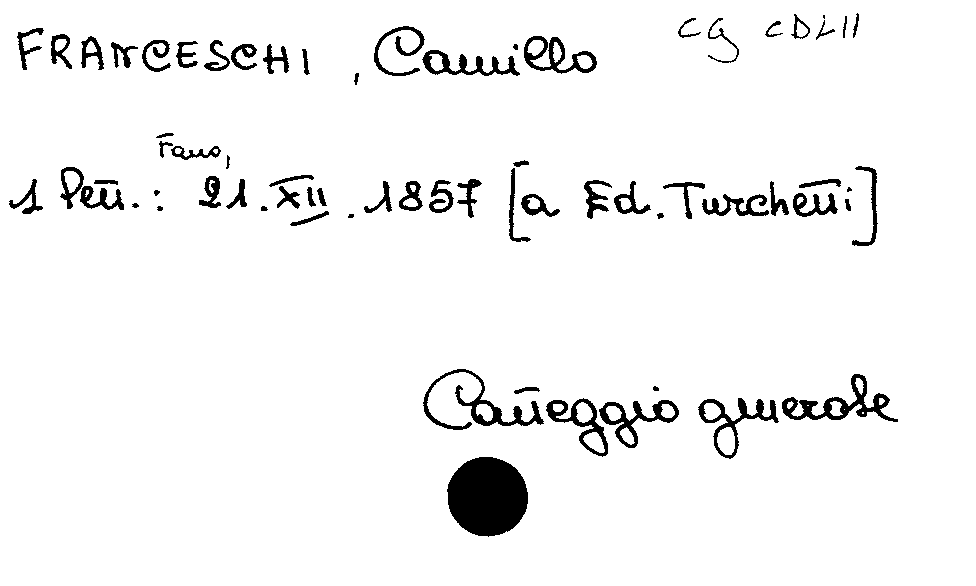 FRANCESCHI, Camillo CG CDLII
Fano,
1 lett.: 21.XII.1857 [a Ed. Turchetti]
Carteggio generale